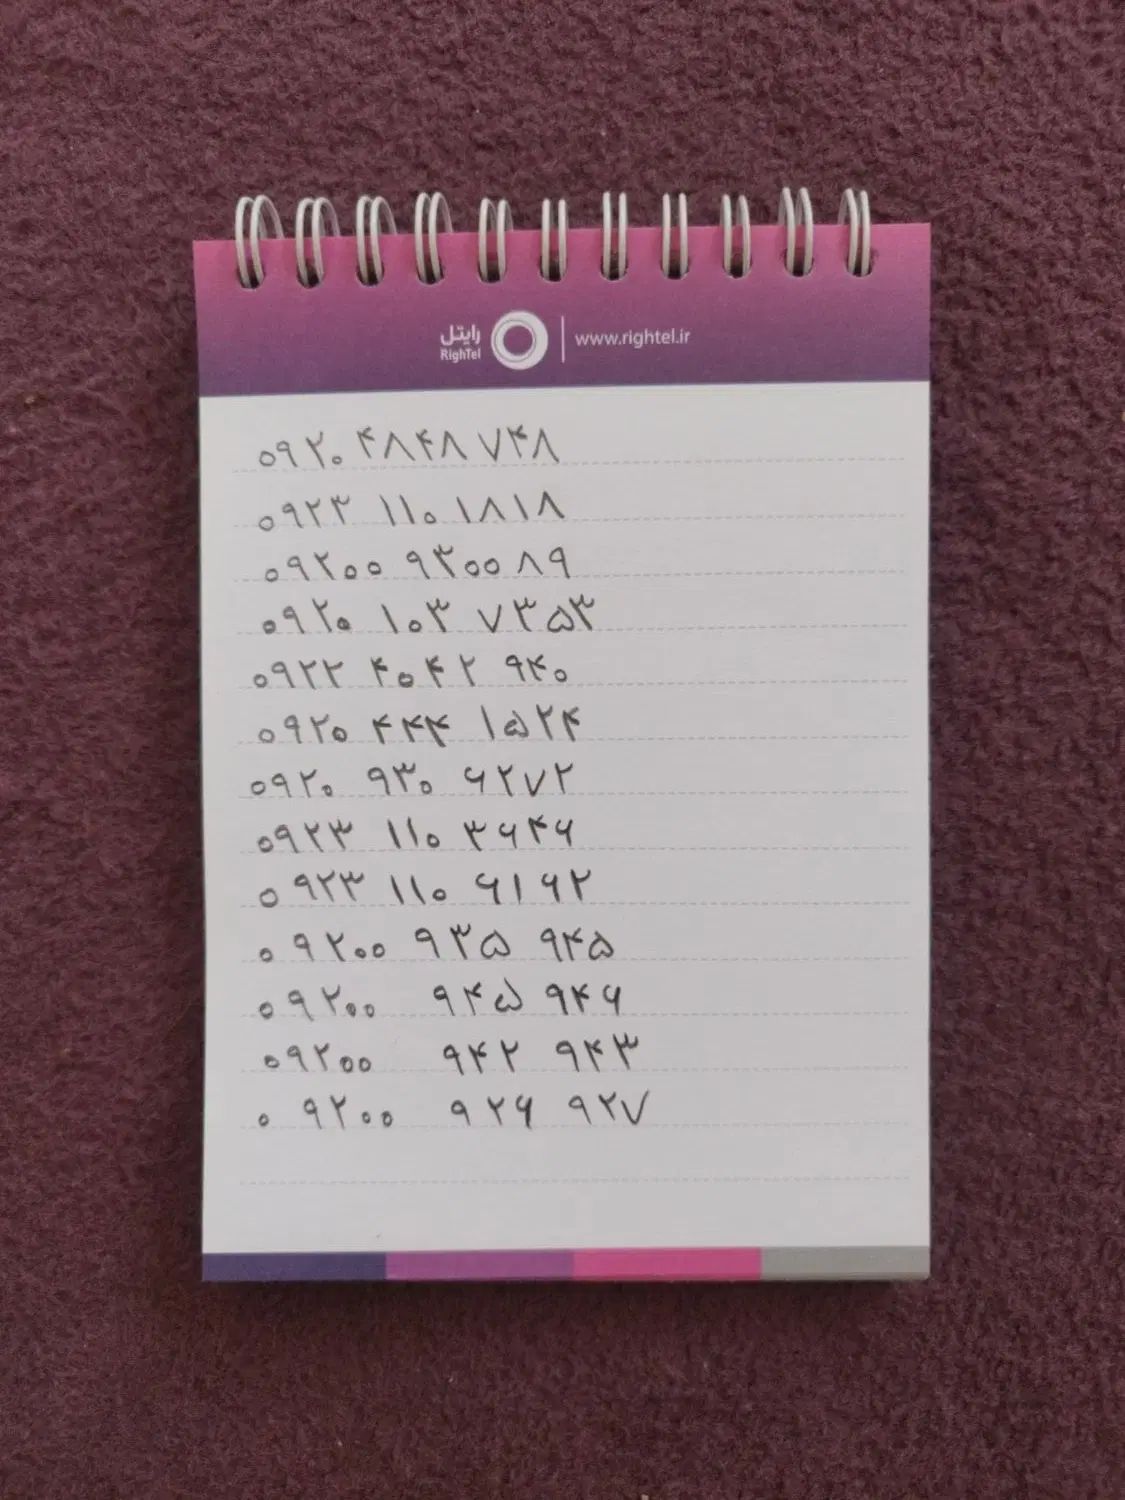 رایتل
RighTel
www.rightel.ir
۰۹۲۰ ۴۸۴۸ ۷۴۸
۰۹۲۳ ۱۱۰ ۱۸۱۸
۰۹۲۰۰ ۹۳۰۰ ۸۹
۰۹۲۰ ۱۰۳ ۷۳۵۳
۰۹۲۲ ۴۰۴۲ ۹۴۰
۰۹۲۰ ۴۴۴ ۱۵۲۴
۰۹۲۰ ۹۳۰ ۶۲۷۲
۰۹۲۳ ۱۱۰ ۳۶۴۶
۰۹۲۳ ۱۱۰ ۶۱۶۲
۰۹۲۰۰ ۹۳۵ ۹۴۵
۰۹۲۰۰ ۹۴۵ ۹۴۶
۰۹۲۰۰ ۹۴۲ ۹۴۳
۰۹۲۰۰ ۹۲۶ ۹۲۷